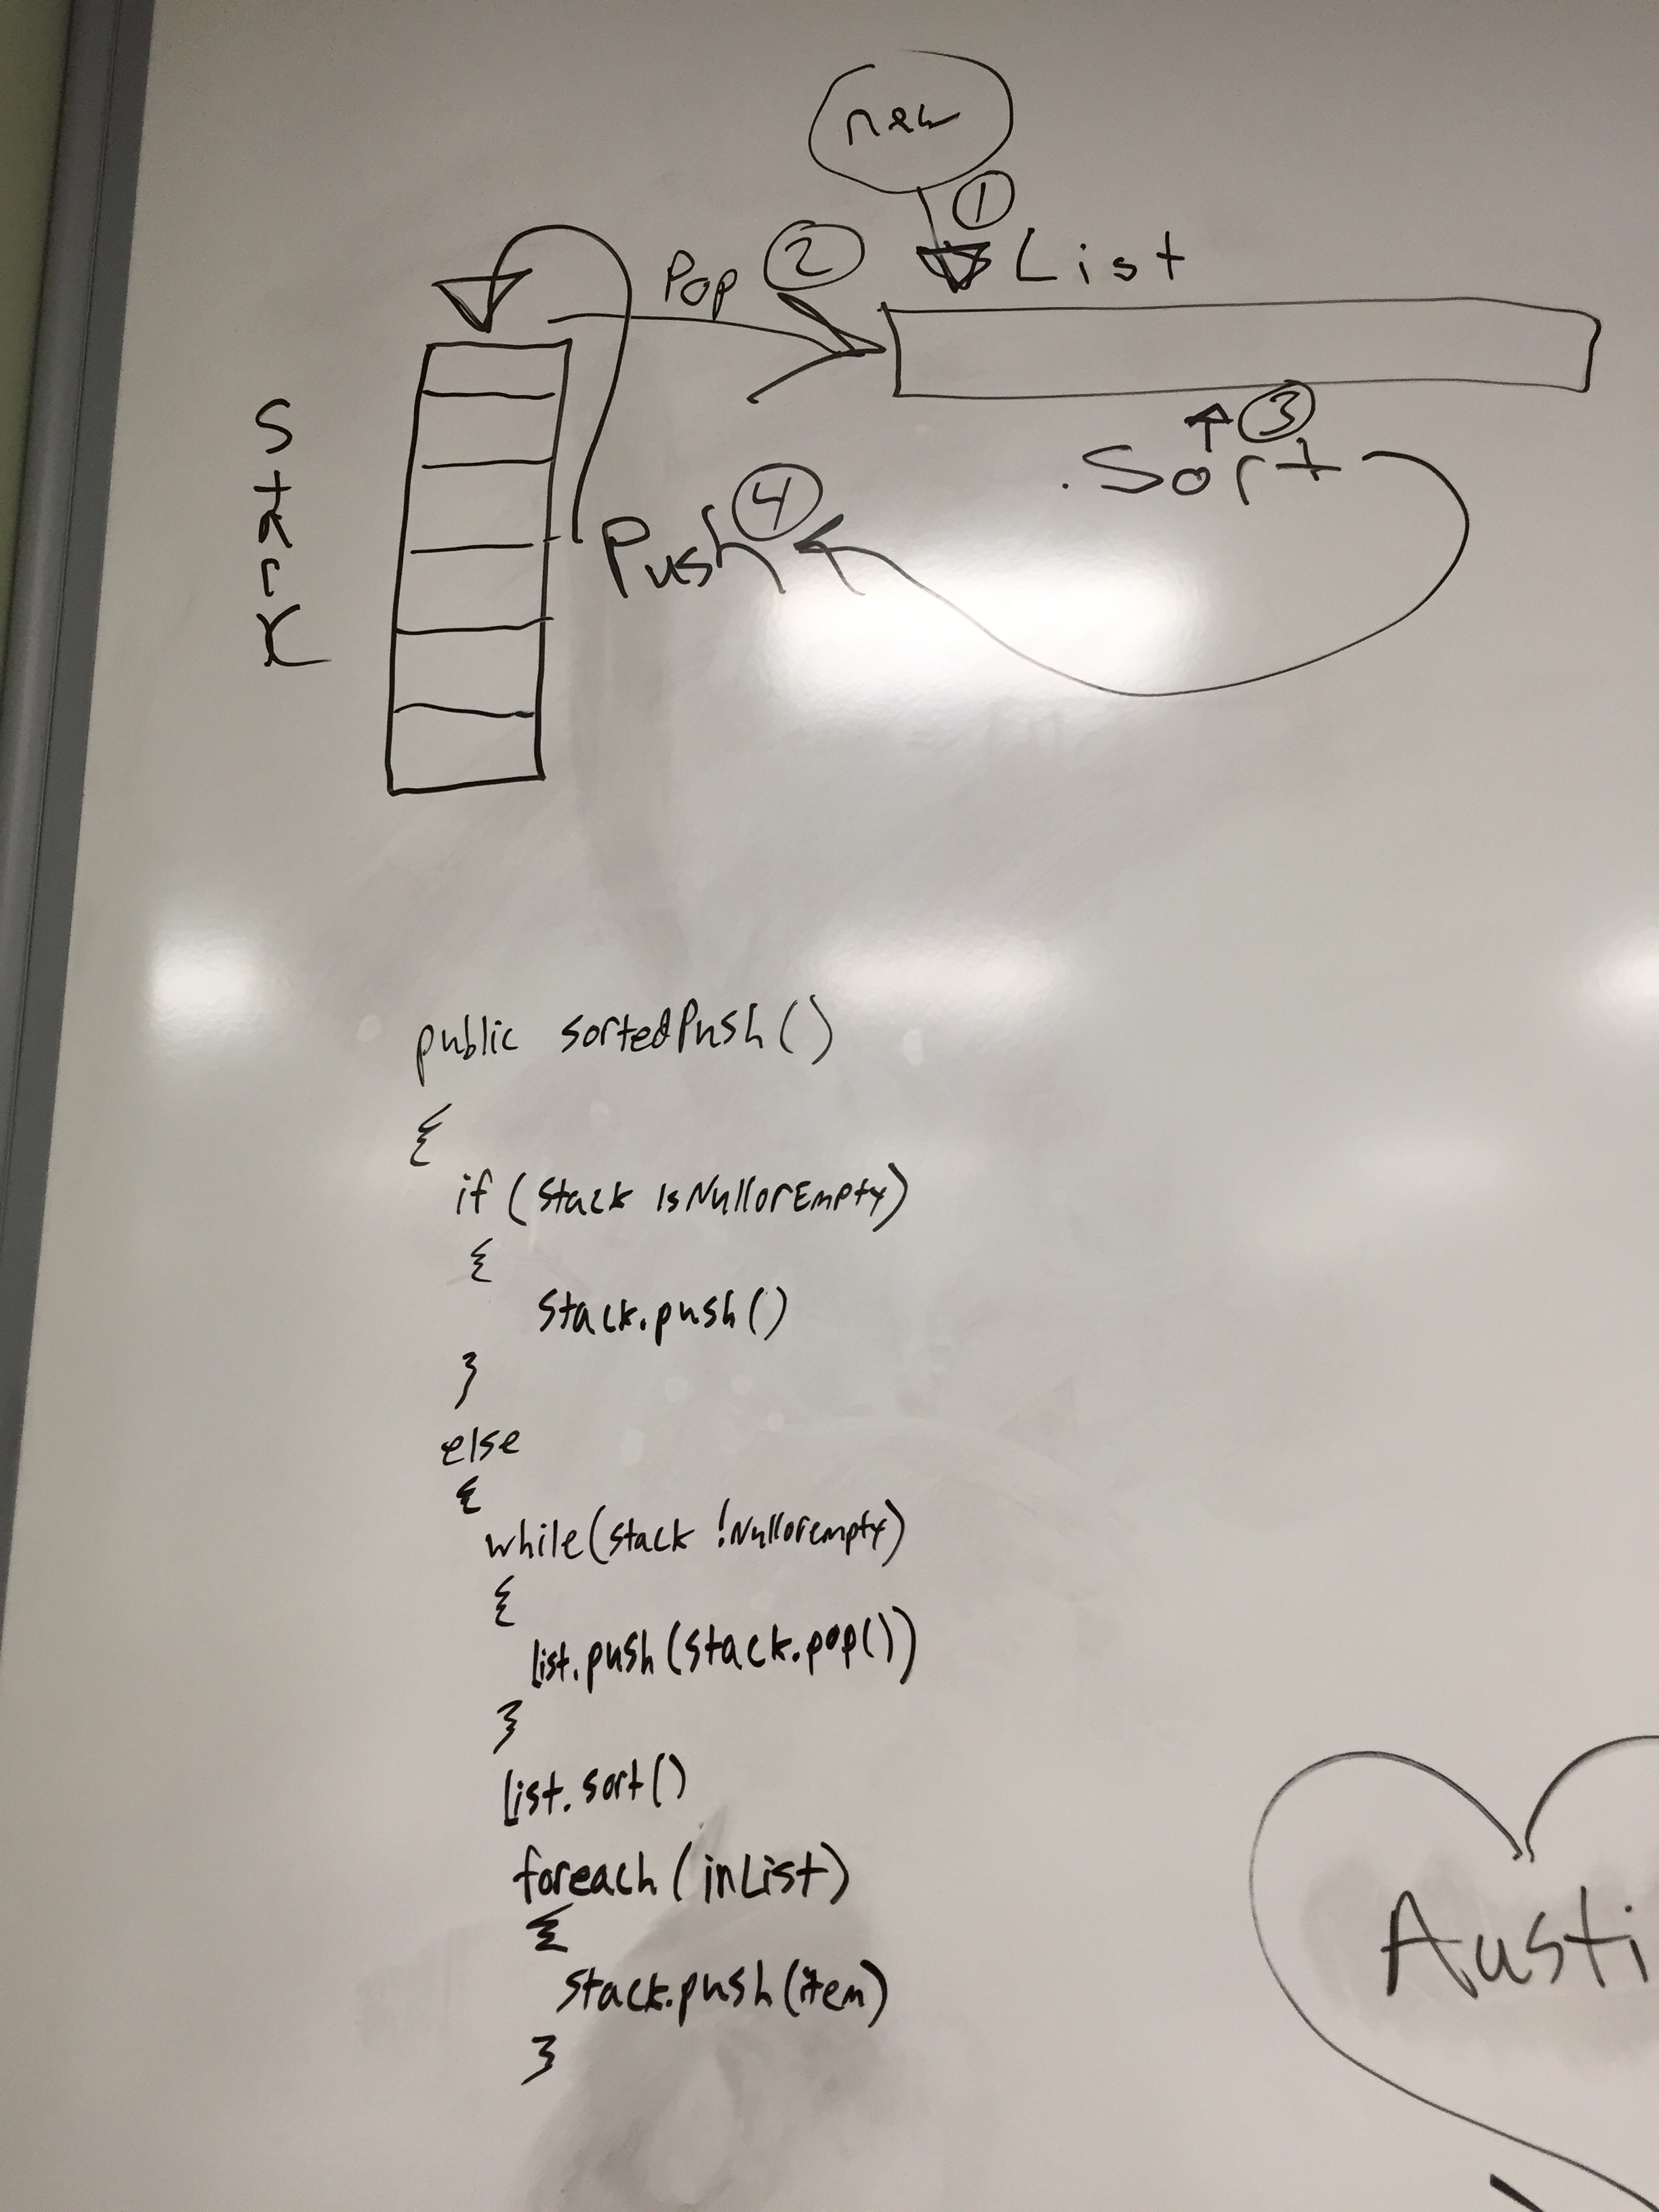 new
1
Pop 2
List
3
.Sort
Push 4
Stack
public sortedPush()
{
if (stack IsNullorEmpty)
{
Stack.push()
}
else
{
while(stack !Nullorempty)
{
list.push(stack.pop())
}
list.sort()
foreach (inList)
{
stack.push(item)
}
Austi